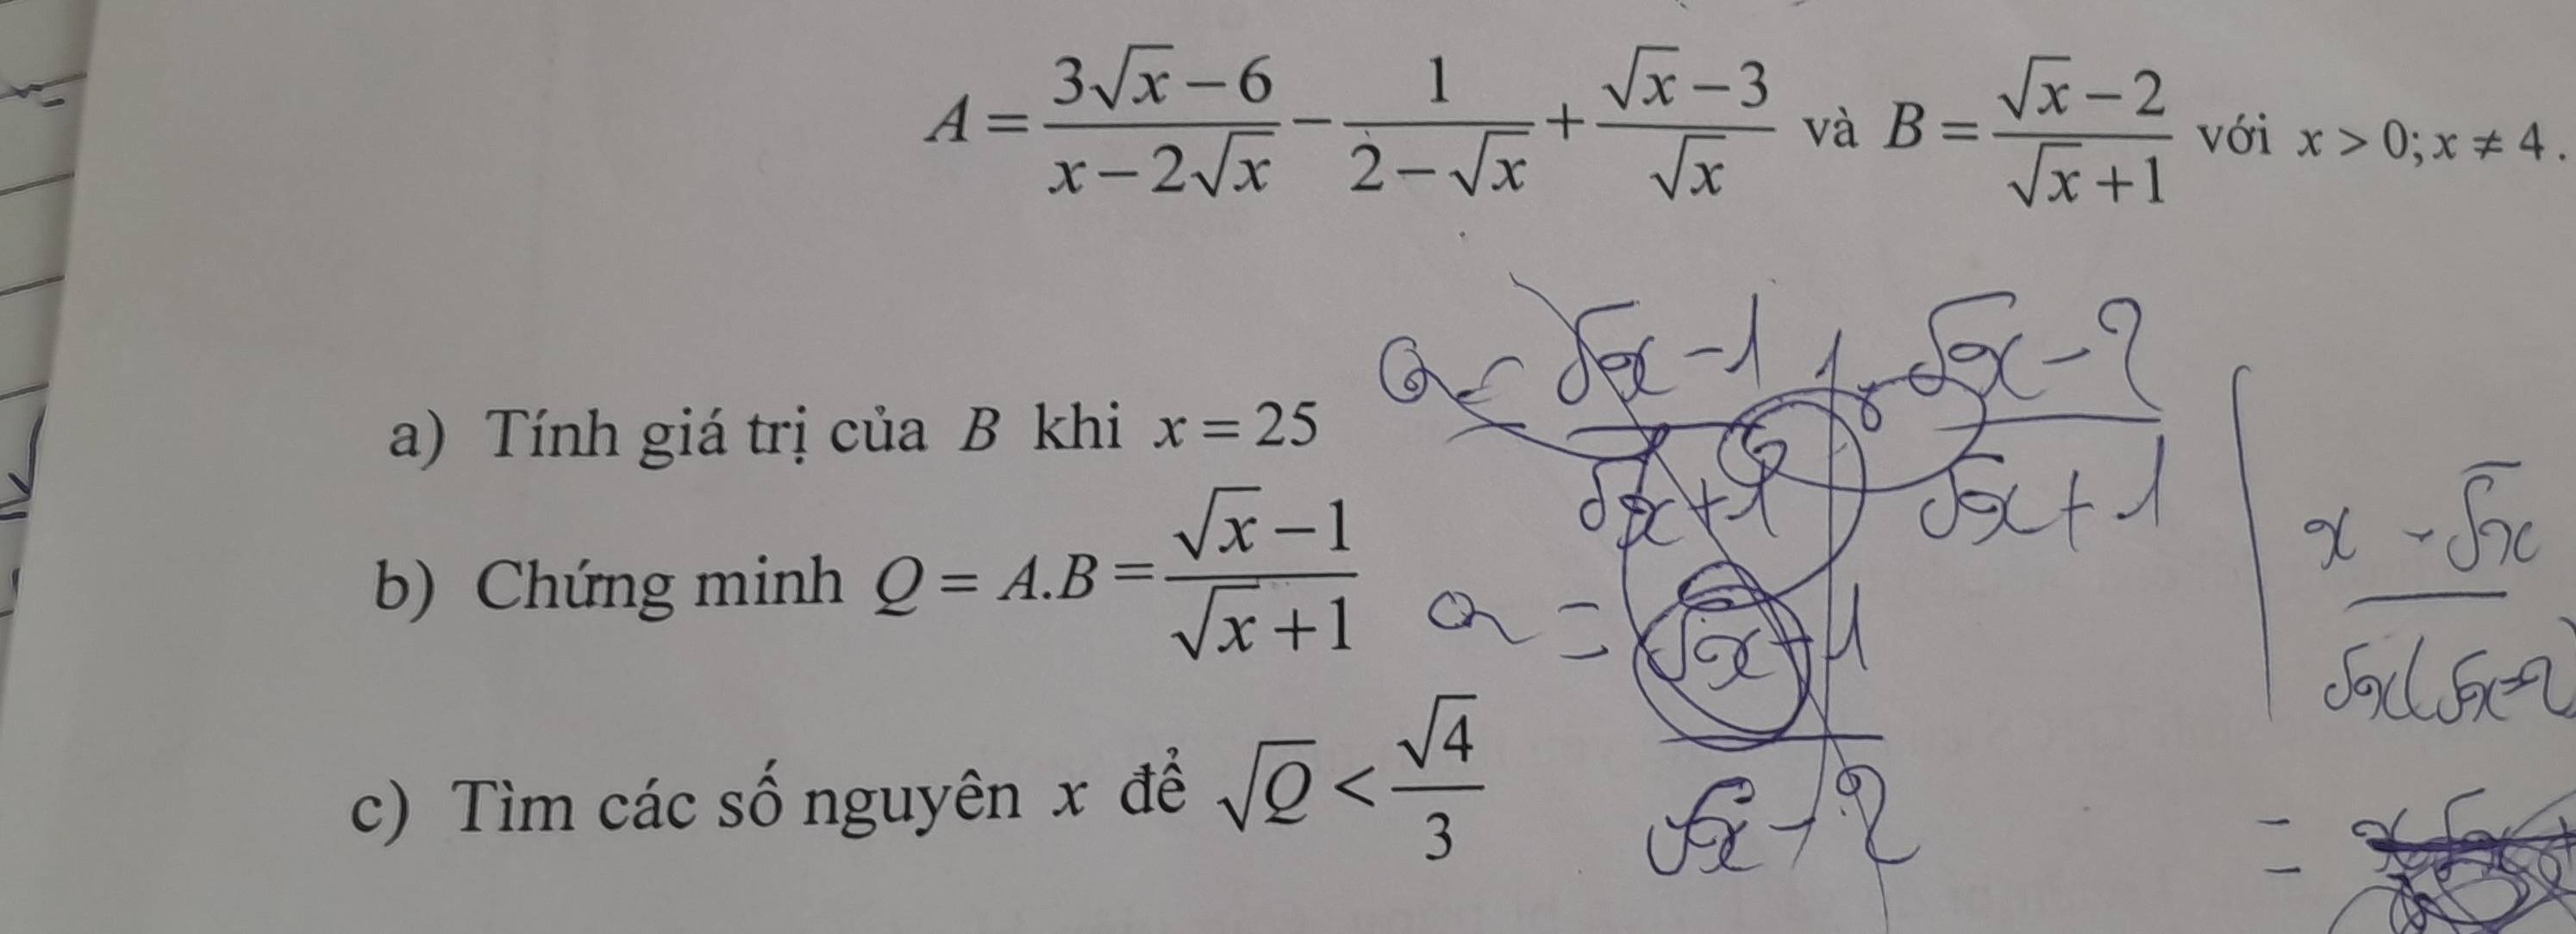 A = \frac{3\sqrt{x}-6}{x-2\sqrt{x}} - \frac{1}{2-\sqrt{x}} + \frac{\sqrt{x}-3}{\sqrt{x}} và B = \frac{\sqrt{x}-2}{\sqrt{x}+1} với x > 0; x ≠ 4.
a) Tính giá trị của B khi x = 25
b) Chứng minh Q = A.B = \frac{\sqrt{x}-1}{\sqrt{x}+1}
c) Tìm các số nguyên x để \sqrt{Q} < \frac{\sqrt{4}}{3}
Q = \frac{\sqrt{x}-1}{\sqrt{x}+1} . \frac{\sqrt{x}-2}{\sqrt{x}+1}
Q = \frac{\sqrt{x}-1}{\sqrt{x}-2}
\frac{x-\sqrt{x}}{\sqrt{x}(\sqrt{x}-2)}
=